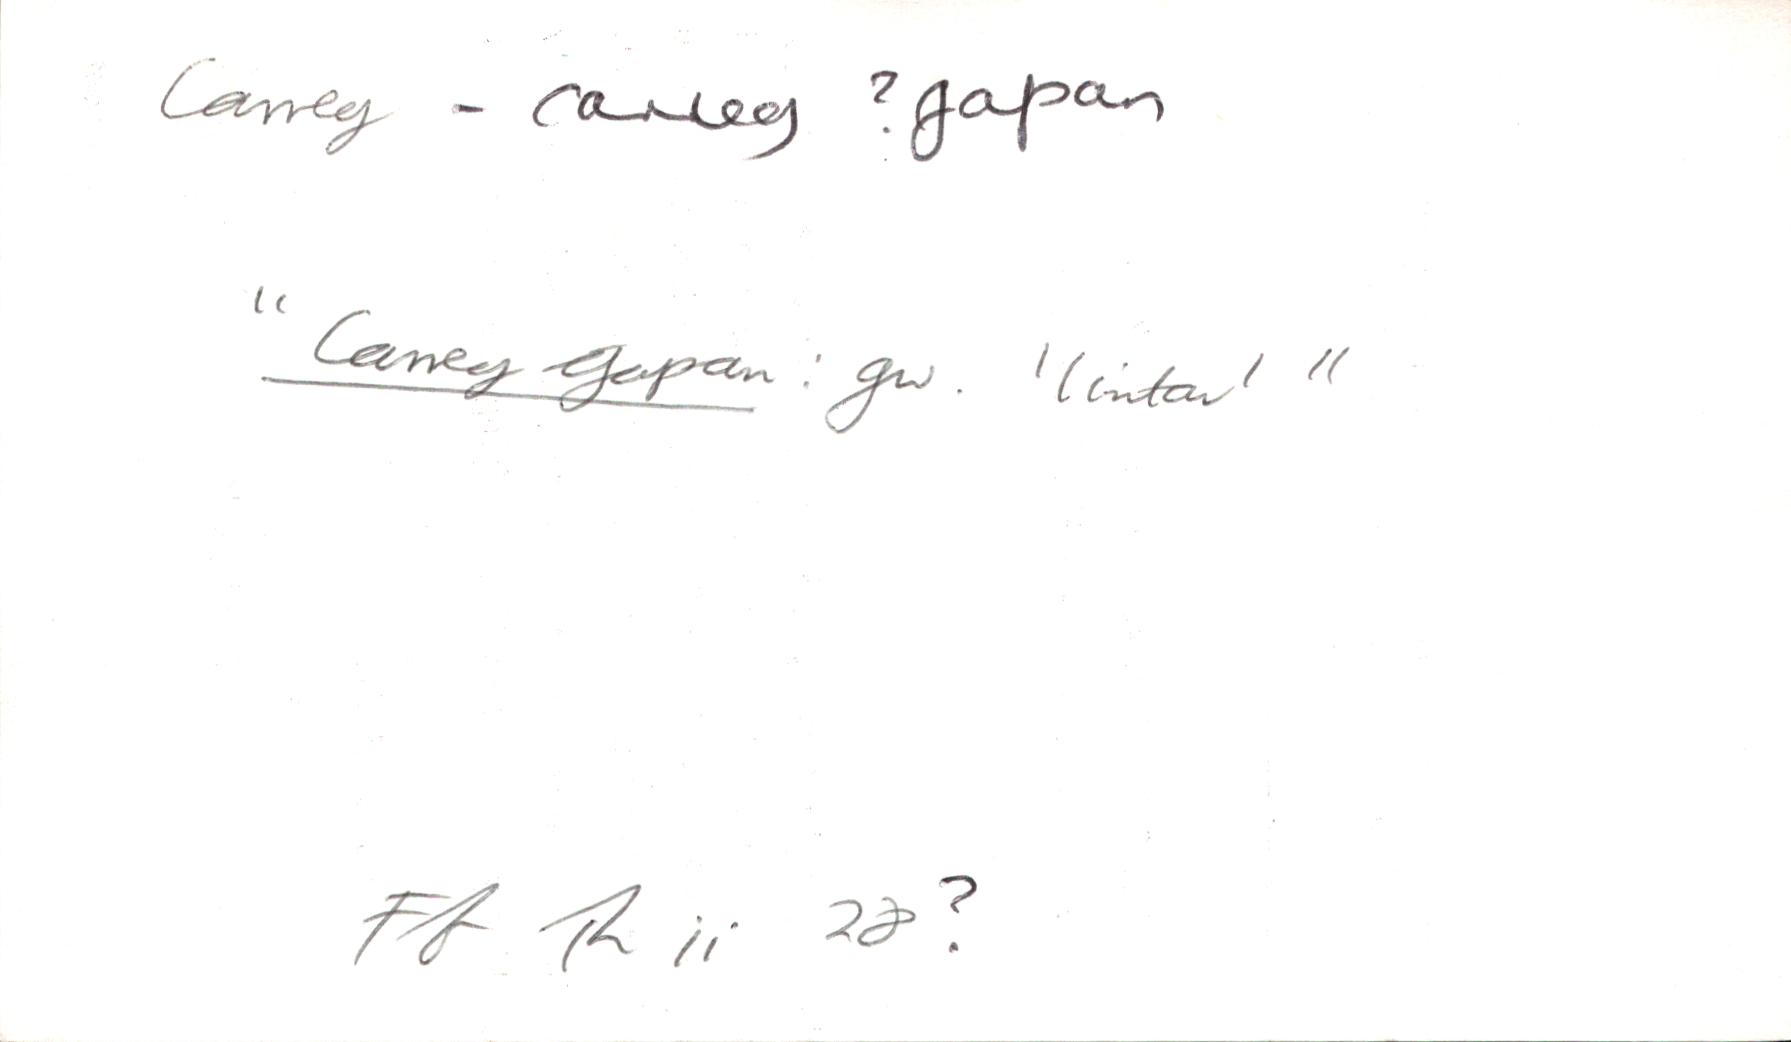 Carreg - carreg ?japan
"Carreg Japan: gw. 'lintar'"
Ff Th ii 28?